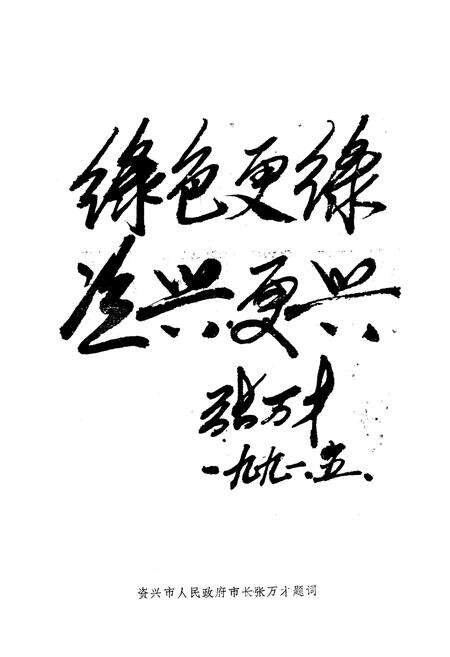 绿色更绿
资兴更兴
张万才
一九九一.五.
资兴市人民政府市长张万才题词